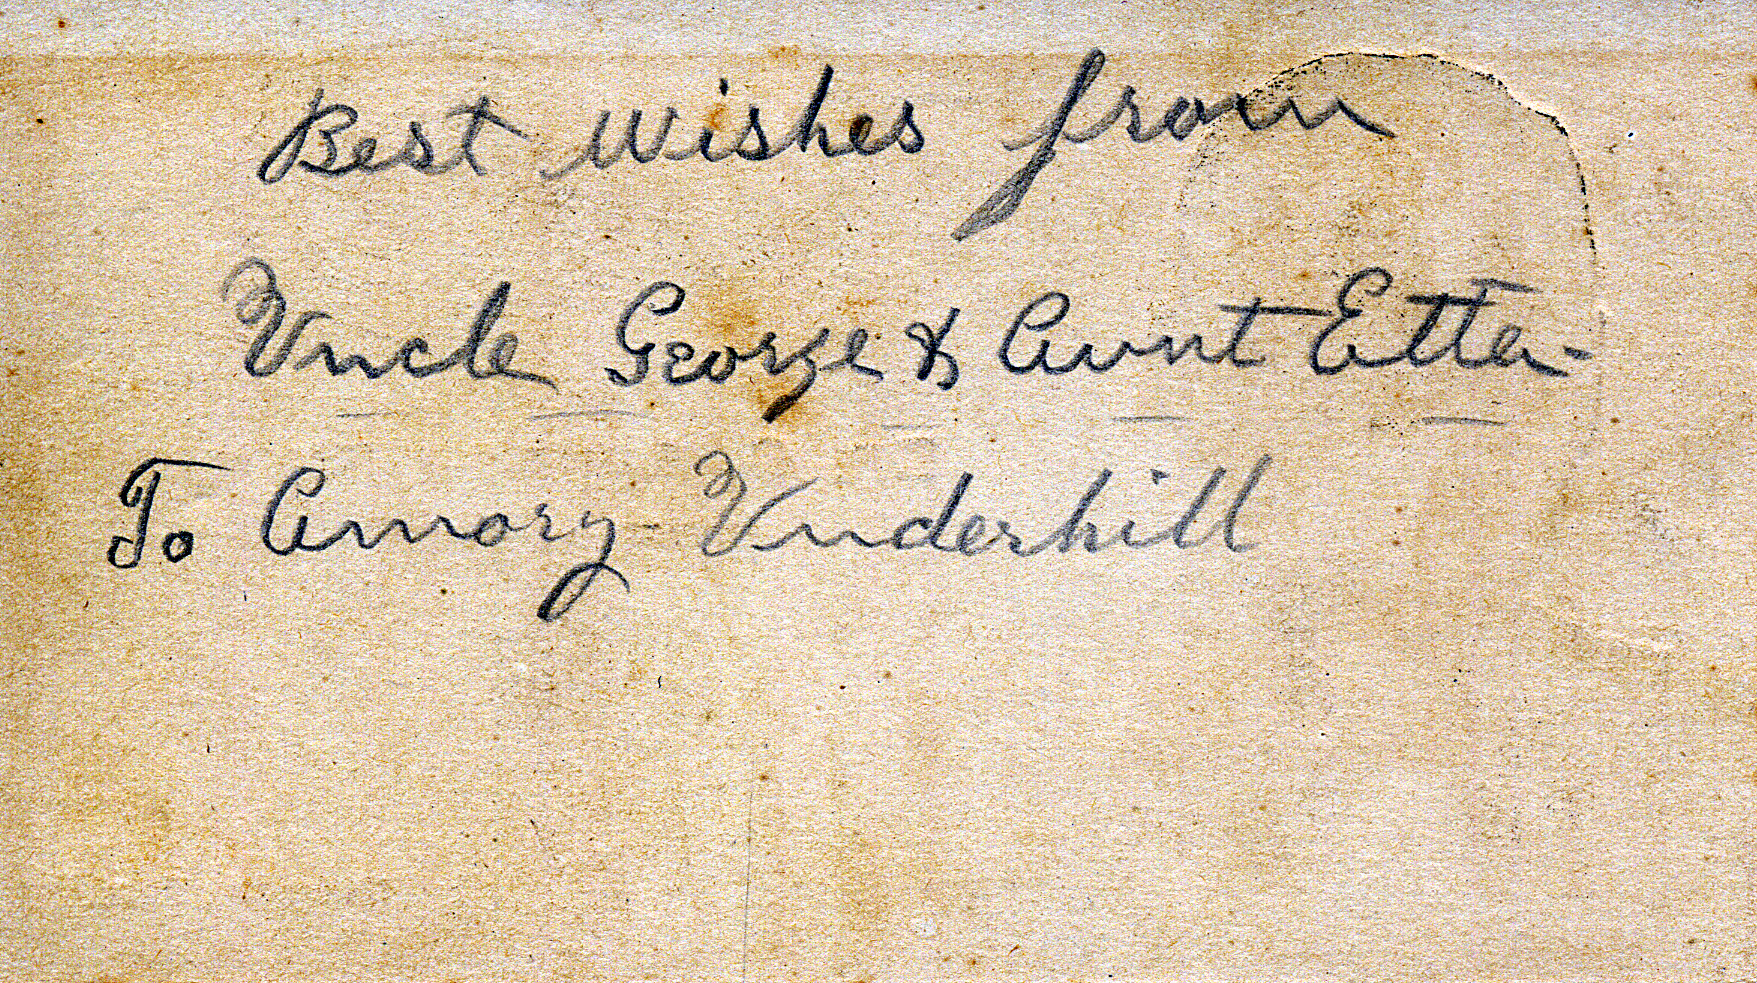 Best Wishes from
Uncle George & Aunt Etta-
To Amory Underhill